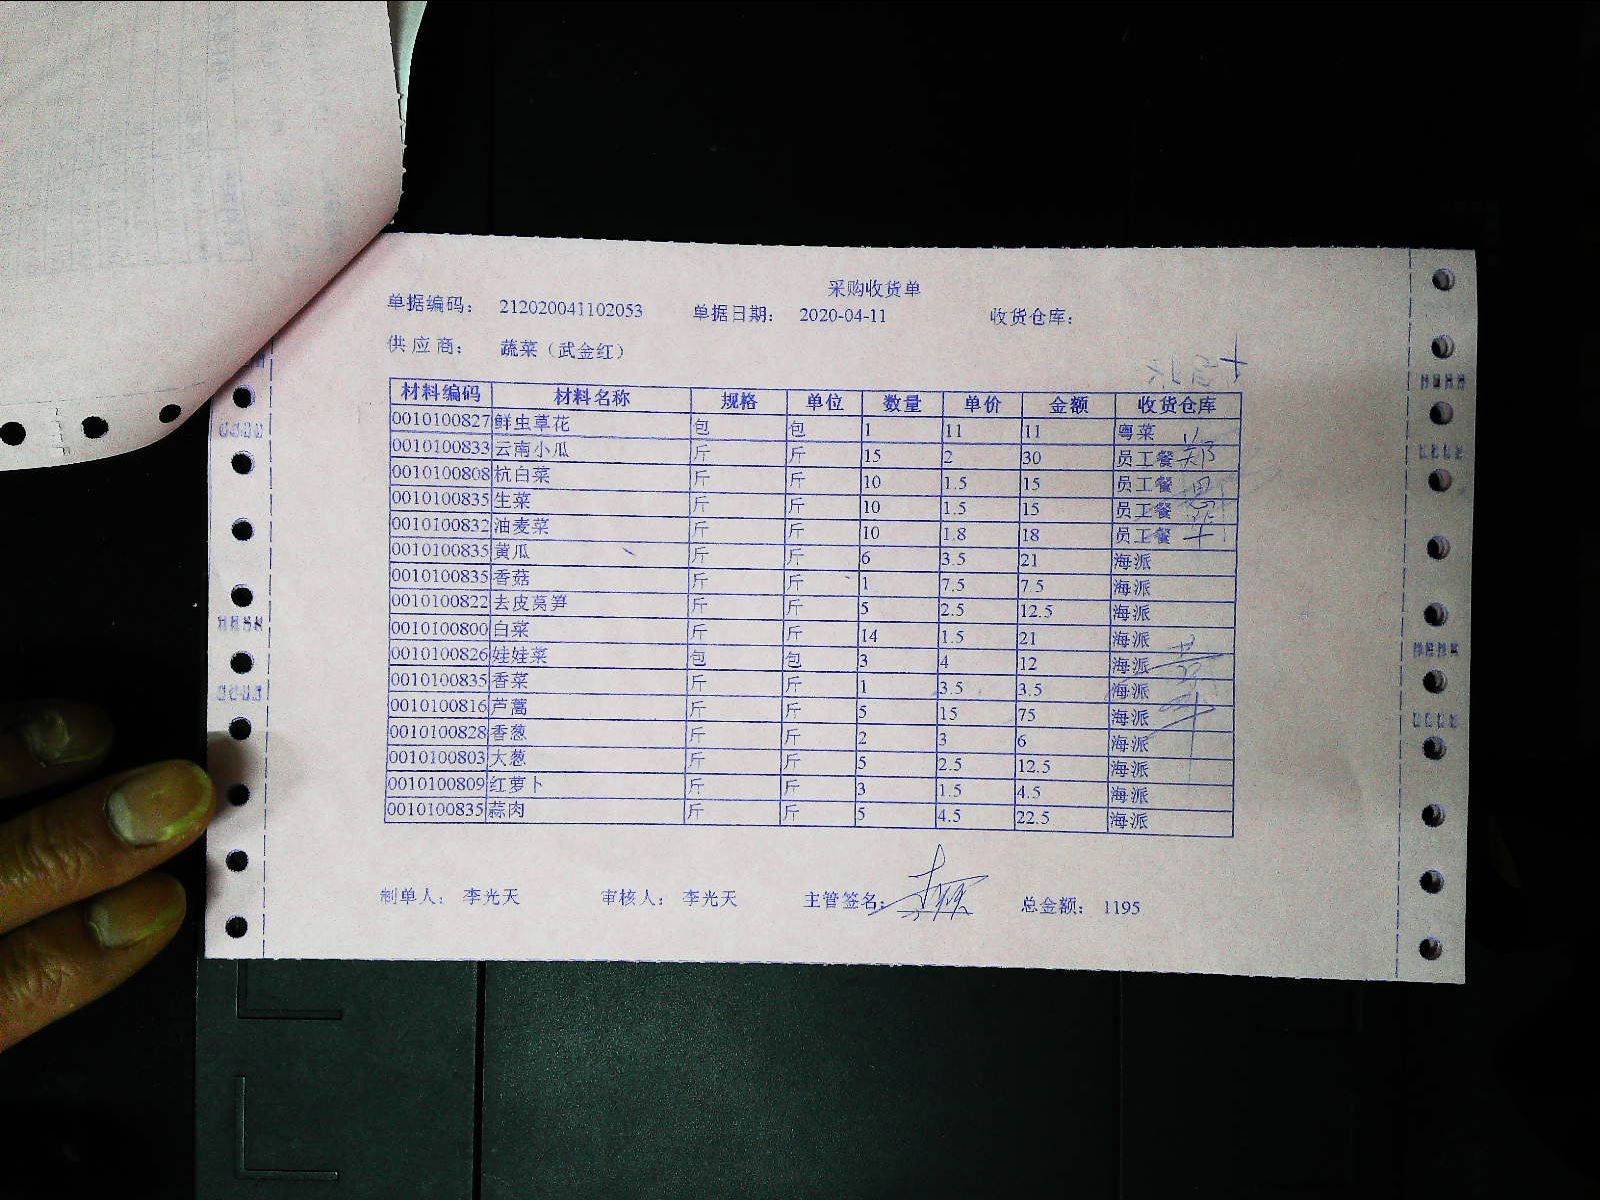 采购收货单
单据编码： 212020041102053 单据日期： 2020-04-11 收货仓库：
供应商： 蔬菜（武金红）
材料编码 材料名称 规格 单位 数量 单价 金额 收货仓库
0010100827 鲜虫草花 包 包 1 11 11 粤菜
0010100833 云南小瓜 斤 斤 15 2 30 员工餐
0010100808 杭白菜 斤 斤 10 1.5 15 员工餐
0010100835 生菜 斤 斤 10 1.5 15 员工餐
0010100832 油麦菜 斤 斤 10 1.8 18 员工餐
0010100835 黄瓜 斤 斤 6 3.5 21 海派
0010100835 香菇 斤 斤 1 7.5 7.5 海派
0010100822 去皮莴笋 斤 斤 5 2.5 12.5 海派
0010100800 白菜 斤 斤 14 1.5 21 海派
0010100826 娃娃菜 包 包 3 4 12 海派
0010100835 香菜 斤 斤 1 3.5 3.5 海派
0010100816 芦蒿 斤 斤 5 15 75 海派
0010100828 香葱 斤 斤 2 3 6 海派
0010100803 大葱 斤 斤 5 2.5 12.5 海派
0010100809 红萝卜 斤 斤 3 1.5 4.5 海派
0010100835 蒜肉 斤 斤 5 4.5 22.5 海派
制单人： 李光天 审核人： 李光天 主管签名： 总金额： 1195